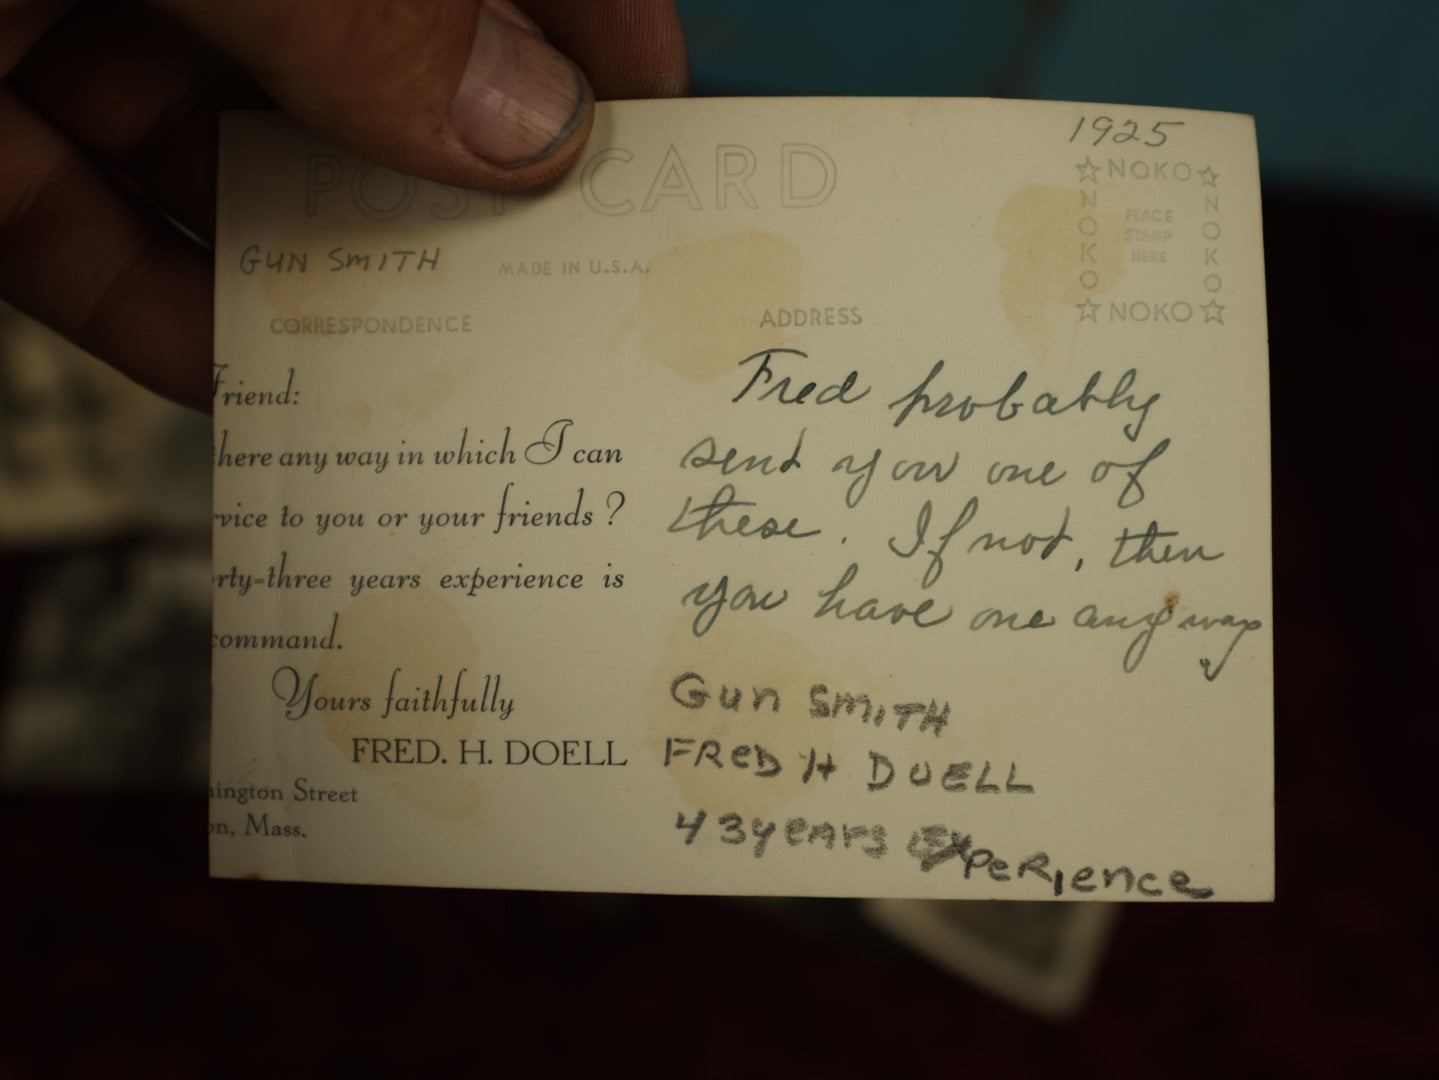 POST CARD
1925
☆NOKO☆
NOKO
PLACE
STAMP
HERE
NOKO
☆NOKO☆
GUN SMITH
MADE IN U.S.A.
CORRESPONDENCE
ADDRESS
Friend:
here any way in which I can
rvice to you or your friends ?
rty-three years experience is
command.
Yours faithfully
FRED. H. DOELL
ington Street
on, Mass.
Fred probably
send you one of
these. If not, then
you have one anyway
GUN SMITH
FRED H DOELL
43 YEARS EXPERIENCE